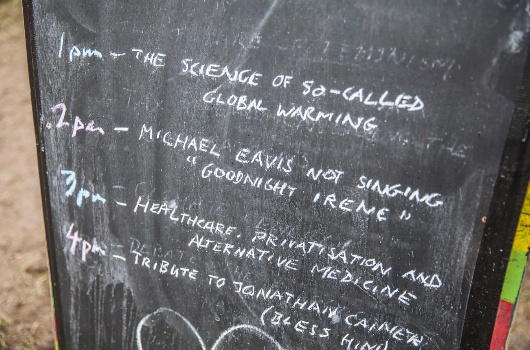 1pm – THE SCIENCE OF SO-CALLED
GLOBAL WARMING
2pm – MICHAEL EAVIS NOT SINGING
"GOODNIGHT IRENE"
3pm – HEALTHCARE, PRIVATISATION AND
ALTERNATIVE MEDICINE
4pm – TRIBUTE TO JONATHAN CAINER
(BLESS HIM)